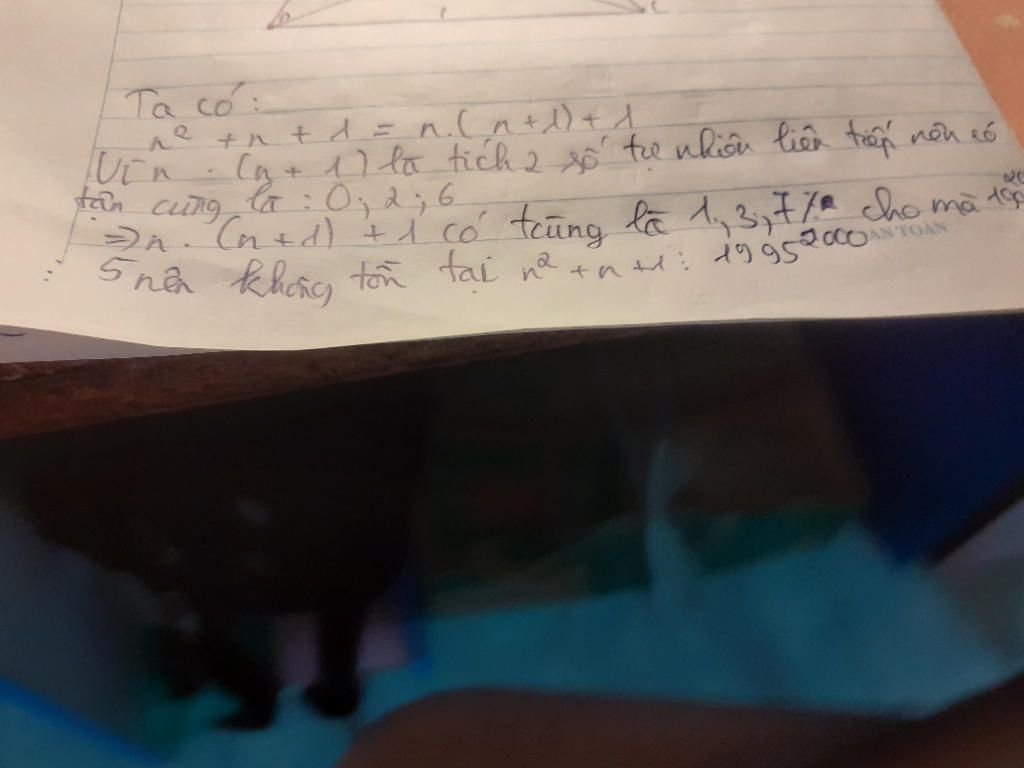 B
C
Ta có:
n² + n + 1 = n.(n+1)+1
Vì n . (n+1) là tích 2 số tự nhiên liên tiếp nên có
tận cùng là : 0; 2; 6
⇒ n . (n+1) + 1 có tcùng là 1, 3, 7 cho mà
AN TOAN
5 nên không tồn tại n² + n + 1 : 1995²⁰⁰⁰